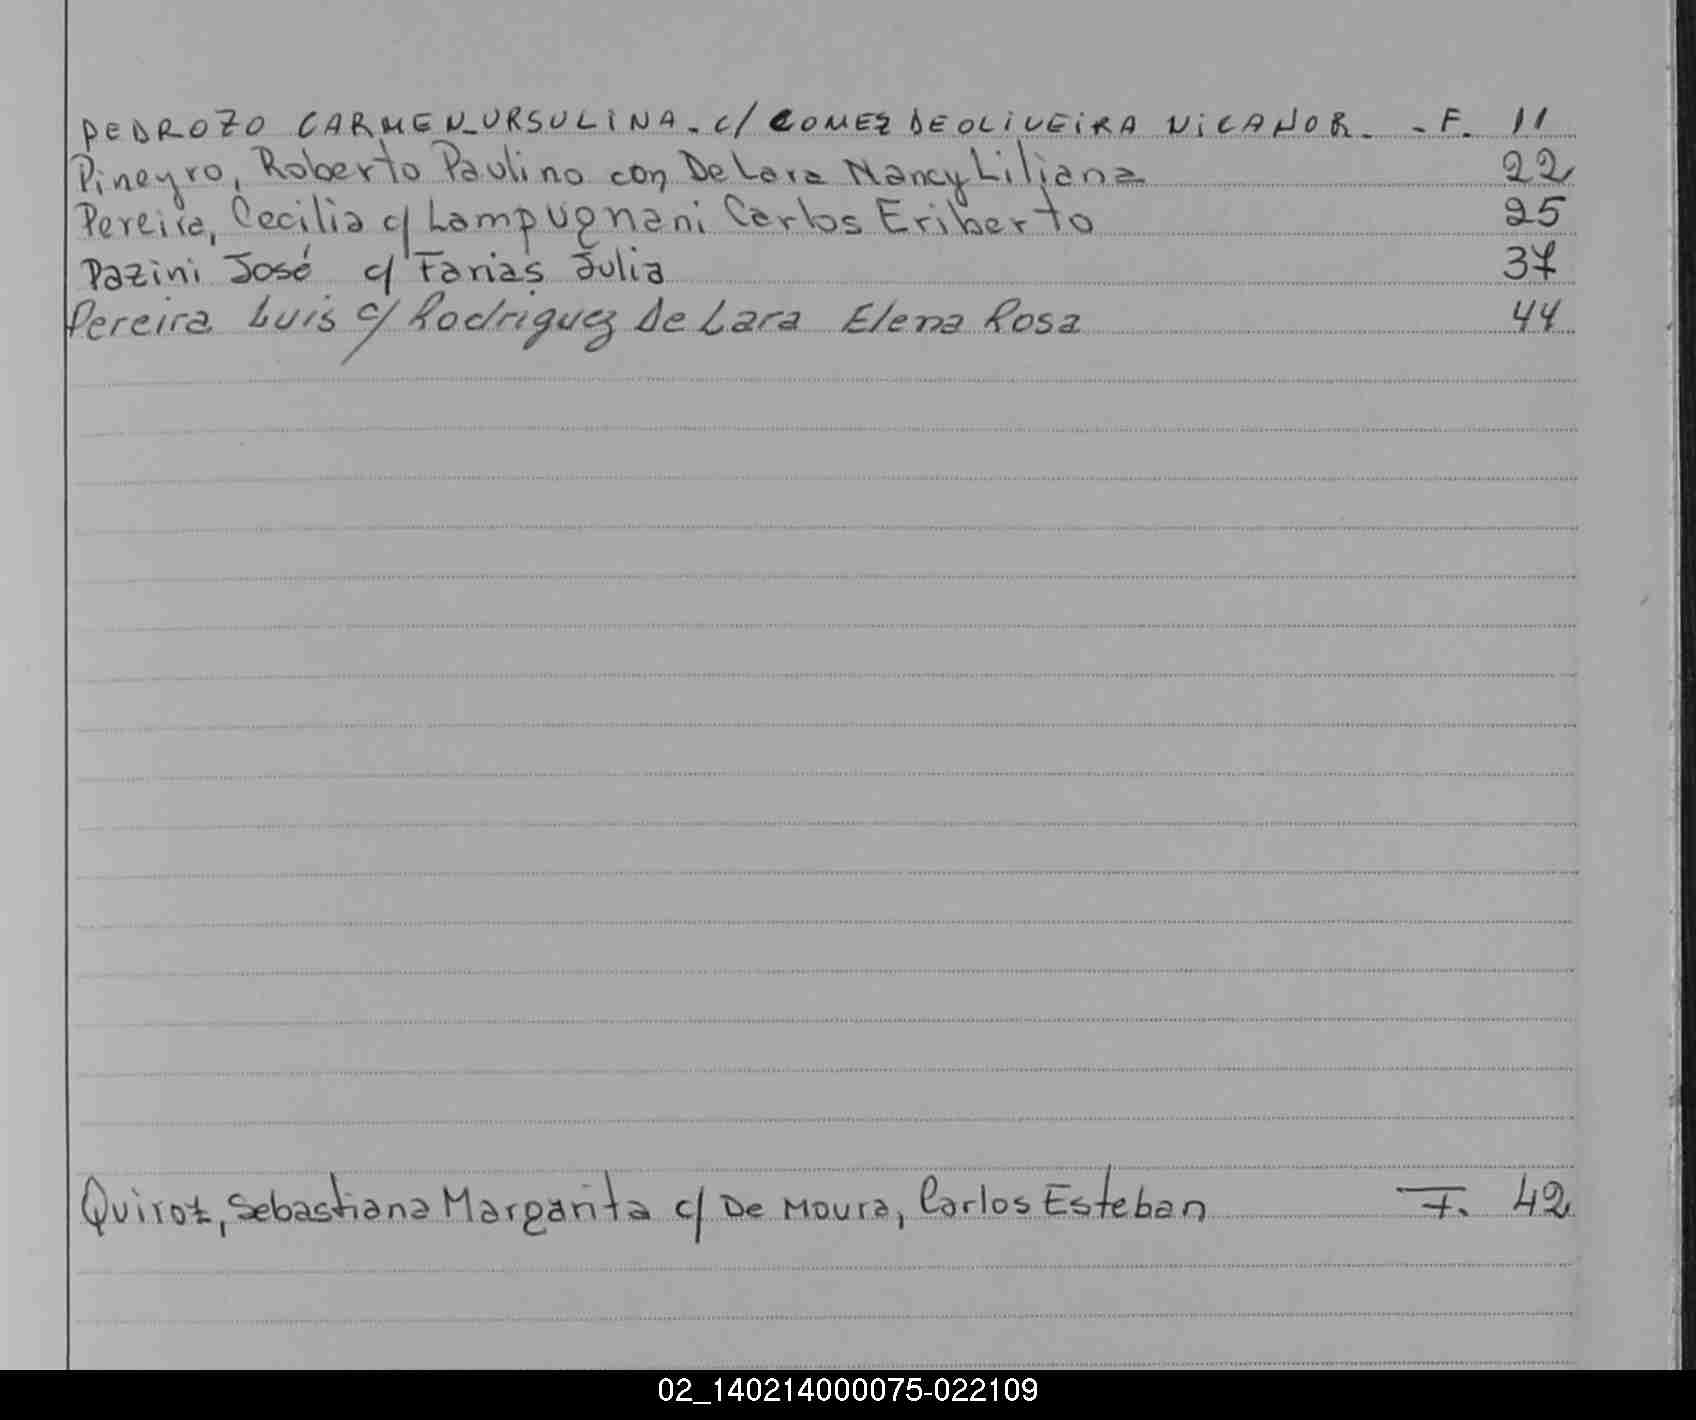 PEDROZO CARMEN URSULINA. c/ GOMEZ DE OLIVEIRA NICANOR. - F. 11
Pineyro, Roberto Paulino con De Lara Nancy Liliana 22
Pereira, Cecilia c/ Lampugnani Carlos Eriberto 25
Pazini José c/ Farias Julia 37
Pereira Luis c/ Rodriguez De Lara Elena Rosa 44
Quiroz, Sebastiana Margarita c/ De Moura, Carlos Esteban F. 42
02_140214000075-022109